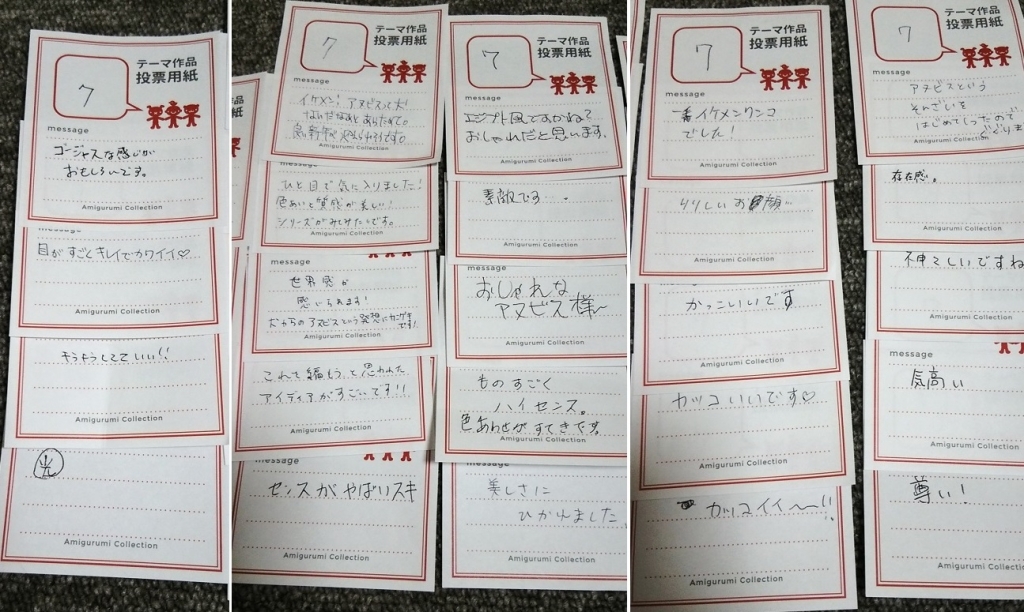 7
テーマ作品
投票用紙
message
ゴージャスな感じが
おもしろいです。
Amigurumi Collection
目がすごくキレイでカワイイ♡
Amigurumi Collection
キラキラしてていい!!
Amigurumi Collection
光
Amigurumi Collection
7
テーマ作品
投票用紙
message
イケメン。アヌビスって犬
Amigurumi Collection
ひと目で気に入りました!
色あいと質感が美しい!
シリーズがみてみたいです。
Amigurumi Collection
message
世界感が
感じられます!
だからのアヌビスという発想に
です!
Amigurumi Collection
これで編もうと思われた
アイディアがすごいです!!
Amigurumi Collection
message
センスがやばいスキ
Amigurumi Collection
7
テーマ作品
投票用紙
message
エジプト風ですかね?
おしゃれだと思います。
Amigurumi Collection
素敵です
Amigurumi Collection
message
おしゃれな
アヌビス様~
Amigurumi Collection
ものすごく
ハイセンス。
色あわせがすてきです。
Amigurumi Collection
message
美しさに
ひかれました
Amigurumi Collection
7
テーマ作品
投票用紙
message
一番イケメンワンコ
でした!
Amigurumi Collection
りりしいお顔
Amigurumi Collection
かっこいいです
Amigurumi Collection
カッコいいです♡
Amigurumi Collection
カッコイイ~~!!
Amigurumi Collection
7
テーマ作品
投票用紙
message
アヌビスという
そんざいを
はじめてしったので
Amigurumi Collection
存在感。
Amigurumi Collection
神々しいですね
Amigurumi Collection
message
気高い
Amigurumi Collection
尊い!
Amigurumi Collection